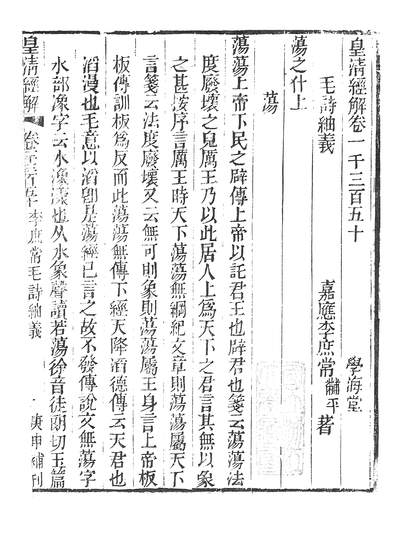 皇清經解卷一千三百五十
學海堂
毛詩紬義
嘉應李庶常黼平著
蕩之什上
蕩
蕩蕩上帝下民之辟傳上帝以託君王也辟君也箋云蕩蕩法
度廢壞之皃厲王乃以此居人上爲天下之君言其無以象
之甚按序言厲王時天下蕩蕩無綱紀文章則蕩蕩屬天下
言箋云法度廢壞又云無可則象則蕩蕩屬王身言上帝板
板傳訓板爲反而此蕩蕩無傳下經天降滔德傳云天君也
滔漫也毛意以滔卽是蕩經已言之故不發傳說文無蕩字
水部潒字云水潒瀁也从水象聲讀若蕩徐音徒朗切玉篇
皇清經解
李庶常毛詩紬義
一
庚申補刊